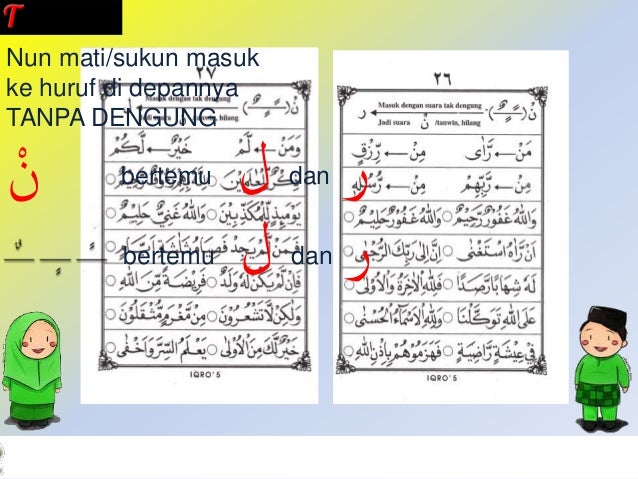 T
Nun mati/sukun masuk
ke huruf di depannya
TANPA DENGUNG
نْ bertemu ل dan ر
ـً ـٍ ـٌ bertemu ل dan ر
٢٧
Masuk dengan tak dengung
Jadi suara /tanwin, hilang
وَمَنْ ← لَّمْ خَيْرٌ ← لَّكُمْ
وَاللهُ غَنِيٌّ حَلِيْمٌ ○ يَوْمَئِذٍ لِّلْمُكَذِّبِيْنَ
فَمَنْ لَّمْ يَجِدْ فَصِيَامُ ثَلٰثَةِ اَيَّامٍ
فَاِنْ لَّمْ يَكُنْ لَّهٗ وَلَدٌ ○ فَرِيْضَةً مِّنَ اللهِ
وَلٰكِنْ لَّا تَشْعُرُوْنَ ○ مِّنْ مَّغْرَمٍ مُّثْقَلُوْنَ
خَيْرٌ لَّكَ مِنَ الْاُوْلٰى ○ يَعْلَمُ السِّرَّ وَاَخْفٰى
IQRO' 5
٢٦
Masuk dengan suara tak dengung
Jadi suara نْ /tanwin, hilang
مَنْ ← رَّاٰى مِنْ ← رِّزْقٍ
مِنْ ← رَّبِّهِمْ مِنْ ← رُّسُلِهٖ
وَاللهُ غَفُوْرٌ رَّحِيْمٌ
اَنْ رَّاٰهُ اسْتَغْنٰى ○ اِنَّ اِلٰى رَبِّكَ الرُّجْعٰى
لَهٗ شِهَابًا رَّصَدًا ○ فَلِلّٰهِ الْاٰخِرَةُ وَالْاُوْلٰى
عَلَى اللهِ تَوَكَّلْنَا ○ وَلِلّٰهِ الْاَسْمَآءُ الْحُسْنٰى
فِيْ عِيْشَةٍ رَّاضِيَةٍ ○ فَهَزَمُوْهُمْ بِاِذْنِ اللهِ
IQRO' 5